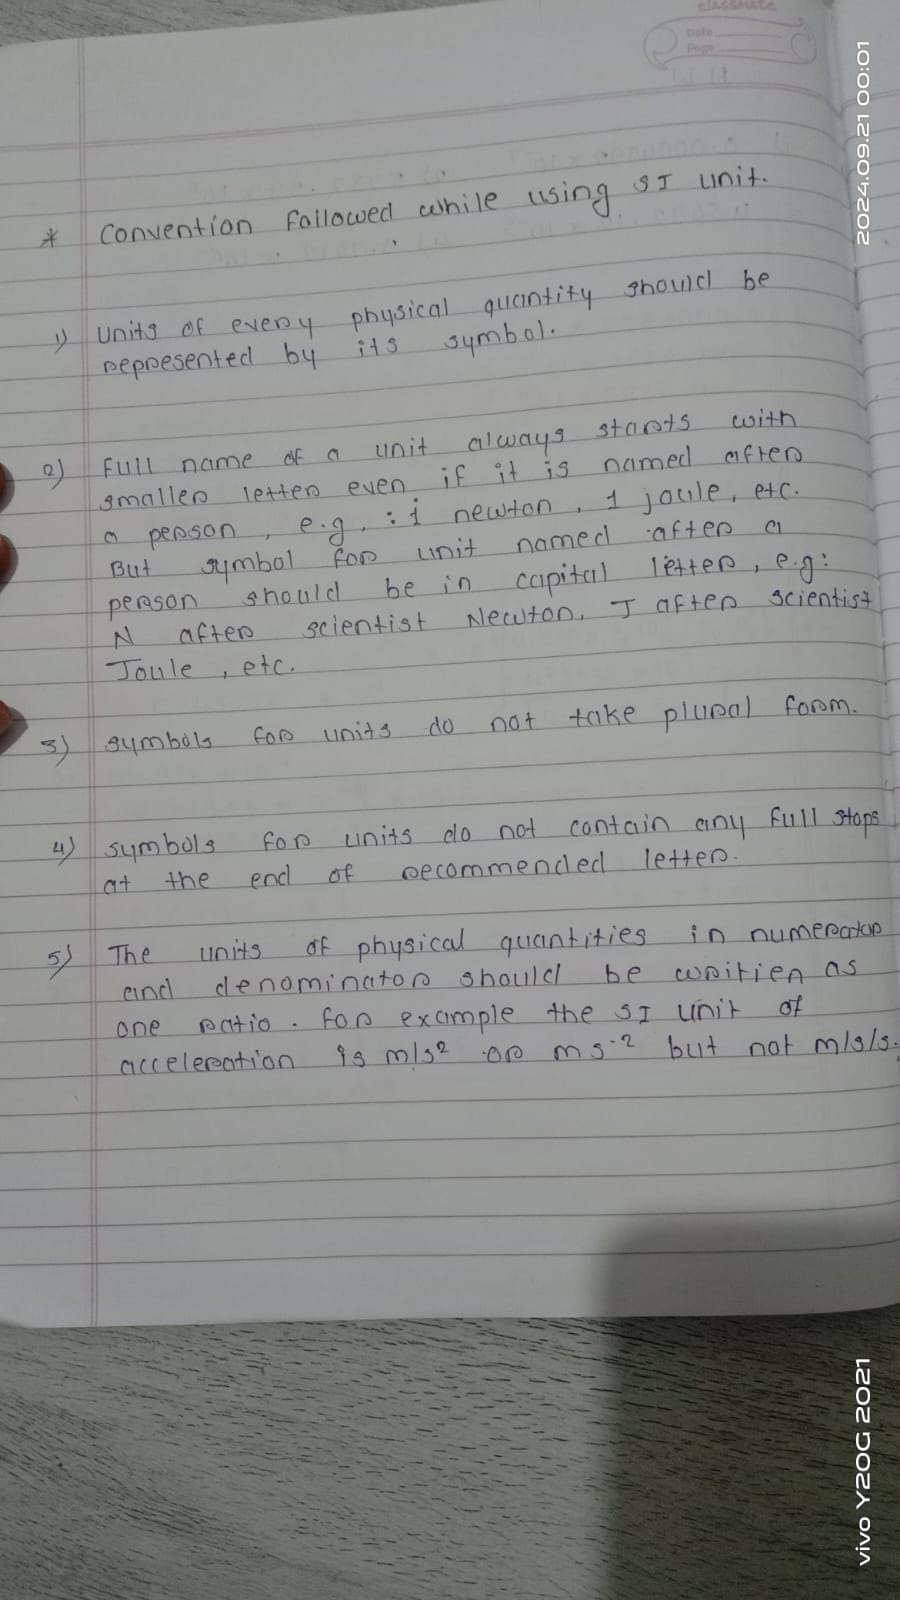 classmate
Date
Page
* Convention followed while using SI unit.
1) Units of every physical quantity should be
represented by its symbol.
2) Full name of a unit always starts with
smaller letter even if it is named after
a person, e.g. : 1 newton, 1 joule, etc.
But symbol for unit named after a
person should be in capital letter, e.g:
N after scientist Newton, J after scientist
Joule, etc.
3) symbols for units do not take plural form.
4) symbols for units do not contain any full stops
at the end of recommended letter.
5) The units of physical quantities in numerator
and denominator should be written as
one ratio. For example the SI unit of
acceleration is m/s² or ms⁻² but not m/s/s.
2024.09.21 00:01
vivo Y20G 2021